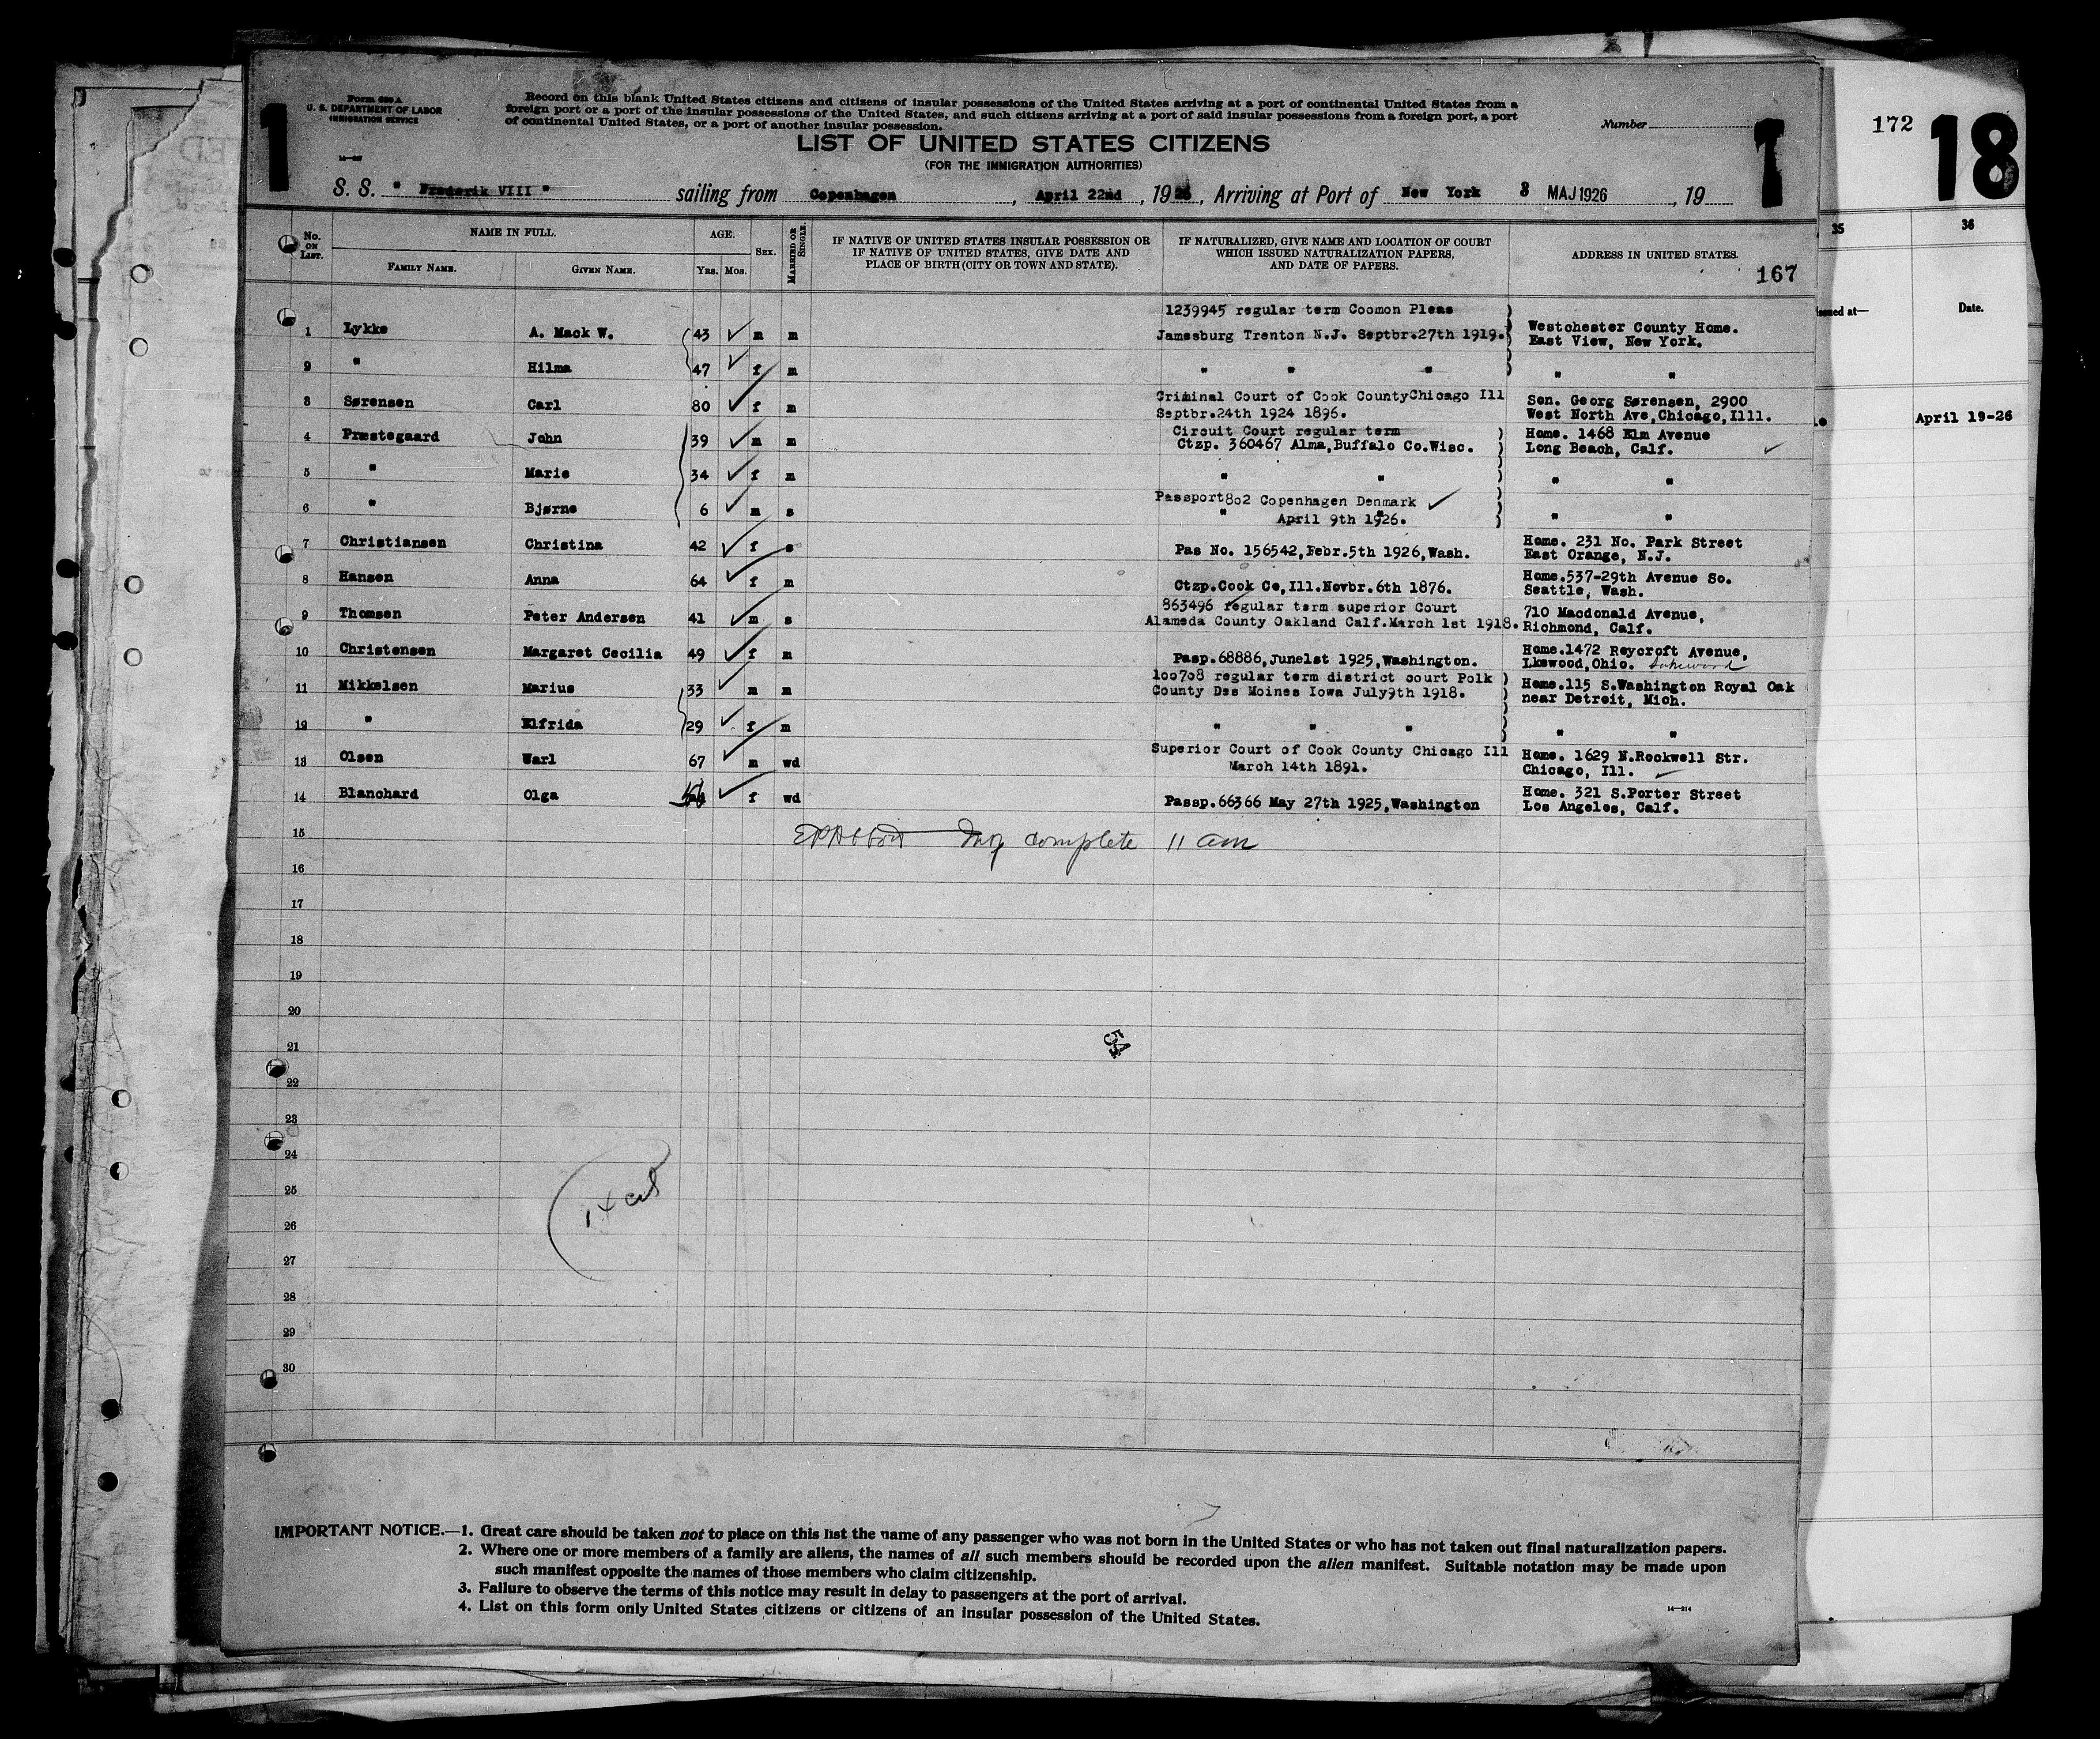 1
Form 630 A
U. S. DEPARTMENT OF LABOR
IMMIGRATION SERVICE
Record on this blank United States citizens and citizens of insular possessions of the United States arriving at a port of continental United States from a
foreign port or a port of the insular possessions of the United States, and such citizens arriving at a port of said insular possessions from a foreign port, a port
of continental United States, or a port of another insular possession.
Number
LIST OF UNITED STATES CITIZENS
(FOR THE IMMIGRATION AUTHORITIES)
172 18
S. S. " Frederik VIII " sailing from Copenhagen, April 22nd, 1926, Arriving at Port of New York 3 MAJ 1926, 19
No. ON LIST. NAME IN FULL. FAMILY NAME. GIVEN NAME. AGE. YRS. MOS. SEX. MARRIED OR SINGLE.
IF NATIVE OF UNITED STATES INSULAR POSSESSION OR
IF NATIVE OF UNITED STATES, GIVE DATE AND
PLACE OF BIRTH (CITY OR TOWN AND STATE).
IF NATURALIZED, GIVE NAME AND LOCATION OF COURT
WHICH ISSUED NATURALIZATION PAPERS,
AND DATE OF PAPERS.
ADDRESS IN UNITED STATES.
167
35 36
Issued at— Date.
April 19-26
1239945 regular term Coomon Pleas
1 Lykke A. Mack W. 43 m m Jamesburg Trenton N.J. Septbr.27th 1919. Westchester County Home.
East View, New York.
2 " Hilma 47 f m " " " " "
3 Sørensen Carl 80 f m Criminal Court of Cook CountyChicago Ill Son. Georg Sørensen, 2900
Septbr.24th 1924 1896. West North Ave,Chicago,Illl.
4 Præstegaard John 39 m m Circuit Court regular term Home. 1468 Elm Avenue
Ctzp. 360467 Alma,Buffalo Co.Wisc. Long Beach, Calf.
5 " Marie 34 f m " " " "
6 " Bjørne 6 m s Passport 802 Copenhagen Denmark " "
April 9th 1926.
7 Christiansen Christina 42 f s Pas No. 156542,Febr.5th 1926,Wash. Home. 231 No. Park Street
East Orange, N.J.
8 Hansen Anna 64 f m Ctzp.Cook Co,Ill.Novbr.6th 1876. Home.537-29th Avenue So.
Seattle, Wash.
9 Thomsen Peter Andersen 41 m s 863496 regular term superior Court 710 Macdonald Avenue,
Alameda County Oakland Calf.March 1st 1918. Richmond, Calf.
10 Christensen Margaret Cecilia 49 f m Pasp.68886,June1st 1925,Washington. Home.1472 Reycroft Avenue,
Lkswood,Ohio. Lakewood
11 Mikkelsen Marius 33 m m 100708 regular term district court Polk Home.115 S.Washington Royal Oak
County Des Moines Iowa July9th 1918. near Detroit, Mich.
12 " Elfrida 29 f m " " " " "
13 Olsen Warl 67 m wd Superior Court of Cook County Chicago Ill Home. 1629 N.Rockwell Str.
March 14th 1891. Chicago, Ill.
14 Blanchard Olga f wd Passp.66366 May 27th 1925,Washington Home. 321 S.Porter Street
Los Angeles, Calf.
15 complete 11 am
16
17
18
19
20
54
21
22
23
24
25
26
27
28
29
30
IMPORTANT NOTICE.—1. Great care should be taken not to place on this list the name of any passenger who was not born in the United States or who has not taken out final naturalization papers.
2. Where one or more members of a family are aliens, the names of all such members should be recorded upon the alien manifest. Suitable notation may be made upon
such manifest opposite the names of those members who claim citizenship.
3. Failure to observe the terms of this notice may result in delay to passengers at the port of arrival.
4. List on this form only United States citizens or citizens of an insular possession of the United States.
14—214